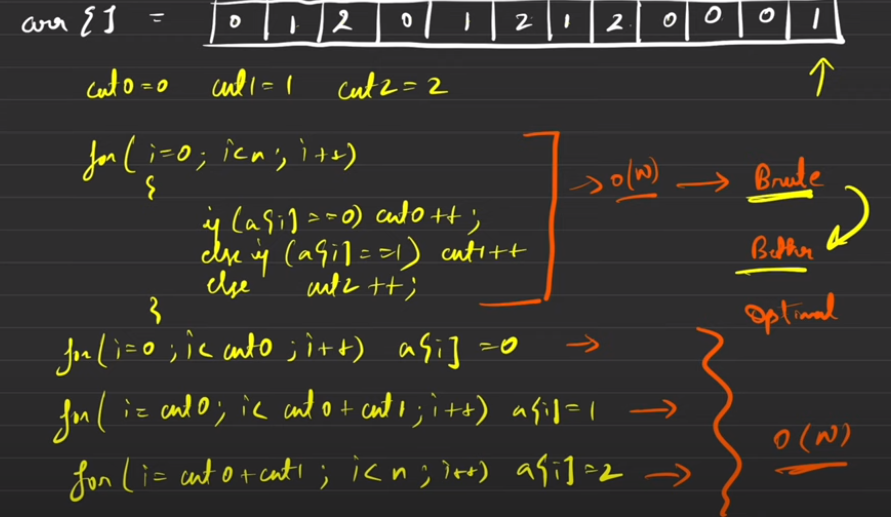 arr[] = 0 1 2 0 1 2 1 2 0 0 0 1
cnt0=0 cnt1=1 cnt2=2
for(i=0; i<n; i++)
{
if(a[i]==0) cnt0++;
else if (a[i]==1) cnt1++
else cnt2++;
}
→ O(N) → Brute
Better
Optimal
for(i=0; i<cnt0; i++) a[i]=0 →
for(i=cnt0; i<cnt0+cnt1; i++) a[i]=1 →
for(i=cnt0+cnt1; i<n; i++) a[i]=2 →
O(N)